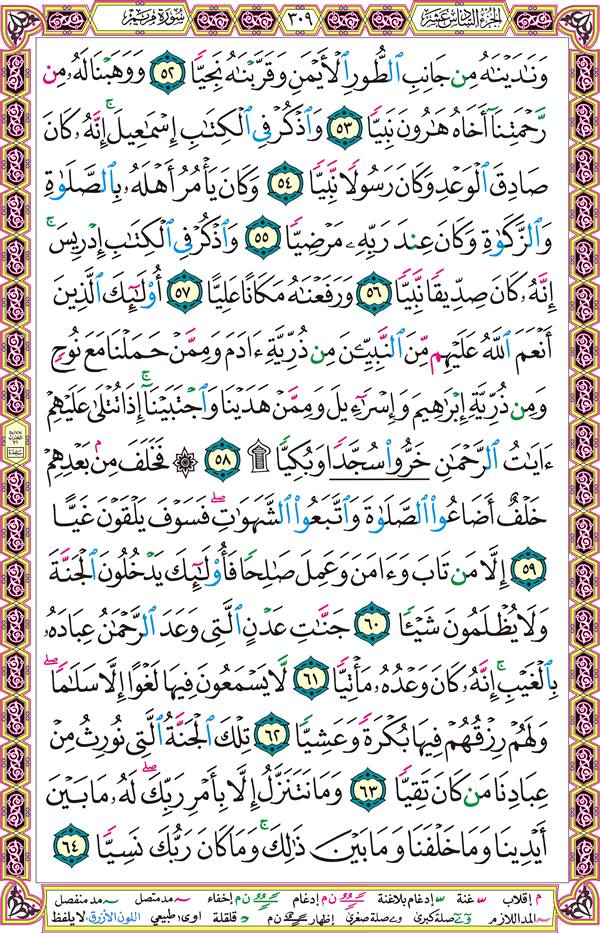 سورة مريم ٣٠٩ الجزء السادس عشر
وَنَٰدَيۡنَٰهُ مِن جَانِبِ ٱلطُّورِ ٱلۡأَيۡمَنِ وَقَرَّبۡنَٰهُ نَجِيّٗا ٥٢ وَوَهَبۡنَا لَهُۥ مِن
رَّحۡمَتِنَآ أَخَاهُ هَٰرُونَ نَبِيّٗا ٥٣ وَٱذۡكُرۡ فِي ٱلۡكِتَٰبِ إِسۡمَٰعِيلَۚ إِنَّهُۥ كَانَ
صَادِقَ ٱلۡوَعۡدِ وَكَانَ رَسُولٗا نَّبِيّٗا ٥٤ وَكَانَ يَأۡمُرُ أَهۡلَهُۥ بِٱلصَّلَوٰةِ
وَٱلزَّكَوٰةِ وَكَانَ عِندَ رَبِّهِۦ مَرۡضِيّٗا ٥٥ وَٱذۡكُرۡ فِي ٱلۡكِتَٰبِ إِدۡرِيسَۚ
إِنَّهُۥ كَانَ صِدِّيقٗا نَّبِيّٗا ٥٦ وَرَفَعۡنَٰهُ مَكَانًا عَلِيًّا ٥٧ أُوْلَٰٓئِكَ ٱلَّذِينَ
أَنۡعَمَ ٱللَّهُ عَلَيۡهِم مِّنَ ٱلنَّبِيِّـۧنَ مِن ذُرِّيَّةِ ءَادَمَ وَمِمَّنۡ حَمَلۡنَا مَعَ نُوحٖ
وَمِن ذُرِّيَّةِ إِبۡرَٰهِيمَ وَإِسۡرَٰٓءِيلَ وَمِمَّنۡ هَدَيۡنَا وَٱجۡتَبَيۡنَآۚ إِذَا تُتۡلَىٰ عَلَيۡهِمۡ
ءَايَٰتُ ٱلرَّحۡمَٰنِ خَرُّواْۤ سُجَّدٗاۤ وَبُكِيّٗا۩ ٥٨ ۞ فَخَلَفَ مِنۢ بَعۡدِهِمۡ
خَلۡفٌ أَضَاعُواْ ٱلصَّلَوٰةَ وَٱتَّبَعُواْ ٱلشَّهَوَٰتِۖ فَسَوۡفَ يَلۡقَوۡنَ غَيًّا
٥٩ إِلَّا مَن تَابَ وَءَامَنَ وَعَمِلَ صَٰلِحٗا فَأُوْلَٰٓئِكَ يَدۡخُلُونَ ٱلۡجَنَّةَ
وَلَا يُظۡلَمُونَ شَيۡـٔٗا ٦٠ جَنَّٰتِ عَدۡنٍ ٱلَّتِي وَعَدَ ٱلرَّحۡمَٰنُ عِبَادَهُۥ
بِٱلۡغَيۡبِۚ إِنَّهُۥ كَانَ وَعۡدُهُۥ مَأۡتِيّٗا ٦١ لَّا يَسۡمَعُونَ فِيهَا لَغۡوًا إِلَّا سَلَٰمٗاۖ
وَلَهُمۡ رِزۡقُهُمۡ فِيهَا بُكۡرَةٗ وَعَشِيّٗا ٦٢ تِلۡكَ ٱلۡجَنَّةُ ٱلَّتِي نُورِثُ مِنۡ
عِبَادِنَا مَن كَانَ تَقِيّٗا ٦٣ وَمَا نَتَنَزَّلُ إِلَّا بِأَمۡرِ رَبِّكَۖ لَهُۥ مَا بَيۡنَ
أَيۡدِينَا وَمَا خَلۡفَنَا وَمَا بَيۡنَ ذَٰلِكَۚ وَمَا كَانَ رَبُّكَ نَسِيّٗا ٦٤
م إقلاب غنة إدغام بلاغنة ن م إدغام ن م إخفاء مد متصل مد منفصل
المد اللازم صلة كبرى صلة صغرى إظهار ن م قلقلة اوى طبيعي اللون الأزرق: لا يلفظ